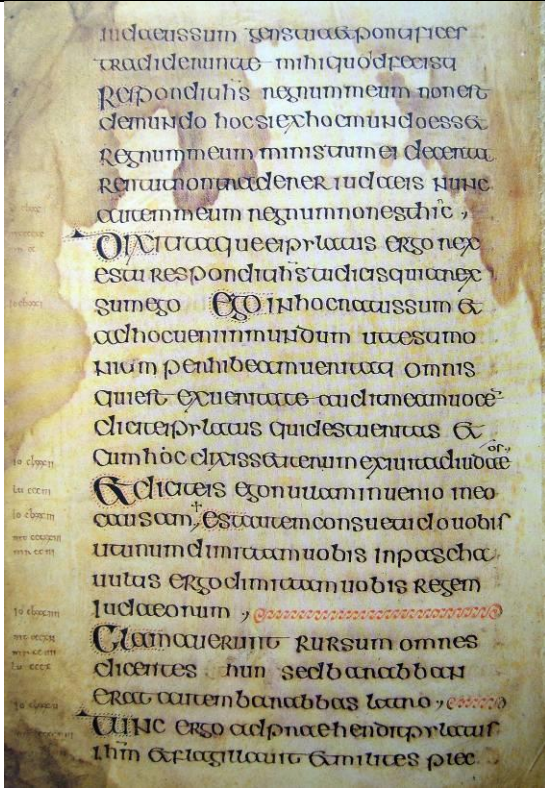 iudaeussum gens tua & pontifices
tradiderunt te mihi quod fecisti
Respondit ihs regnum meum non est
demundo hoc si ex hoc mundo ess&
Regnum meum ministri mei decerta
Rent ut non traderer iudaeis Nunc
autem meum regnum non est hic,
Dixit itaque ei pylatus ergo rex
es tu respondit ihs tu dicis quia rex
sum ego Ego in hoc natus sum &
adhoc ueni in mundum ut testimo
nium perhibeam ueritati omnis
qui est ex ueritate audit meam uocē
dicit ei pylatus quid est ueritas &
Cum hoc dixiss& iterum exiuit ad iudaeos,
& dicit eis ego nullam inuenio in eo
causam, Est autem consuetudo uobis
ut unum dimittam uobis in pascha
uultis ergo dimittam uobis Regem
Iudaeorum,
Clamauerunt rursum omnes
dicentes hun sed barabban
erat autem barabbas latro,
Tunc ergo adpraehendit pylatus
ihm & flagillauit & milites plec